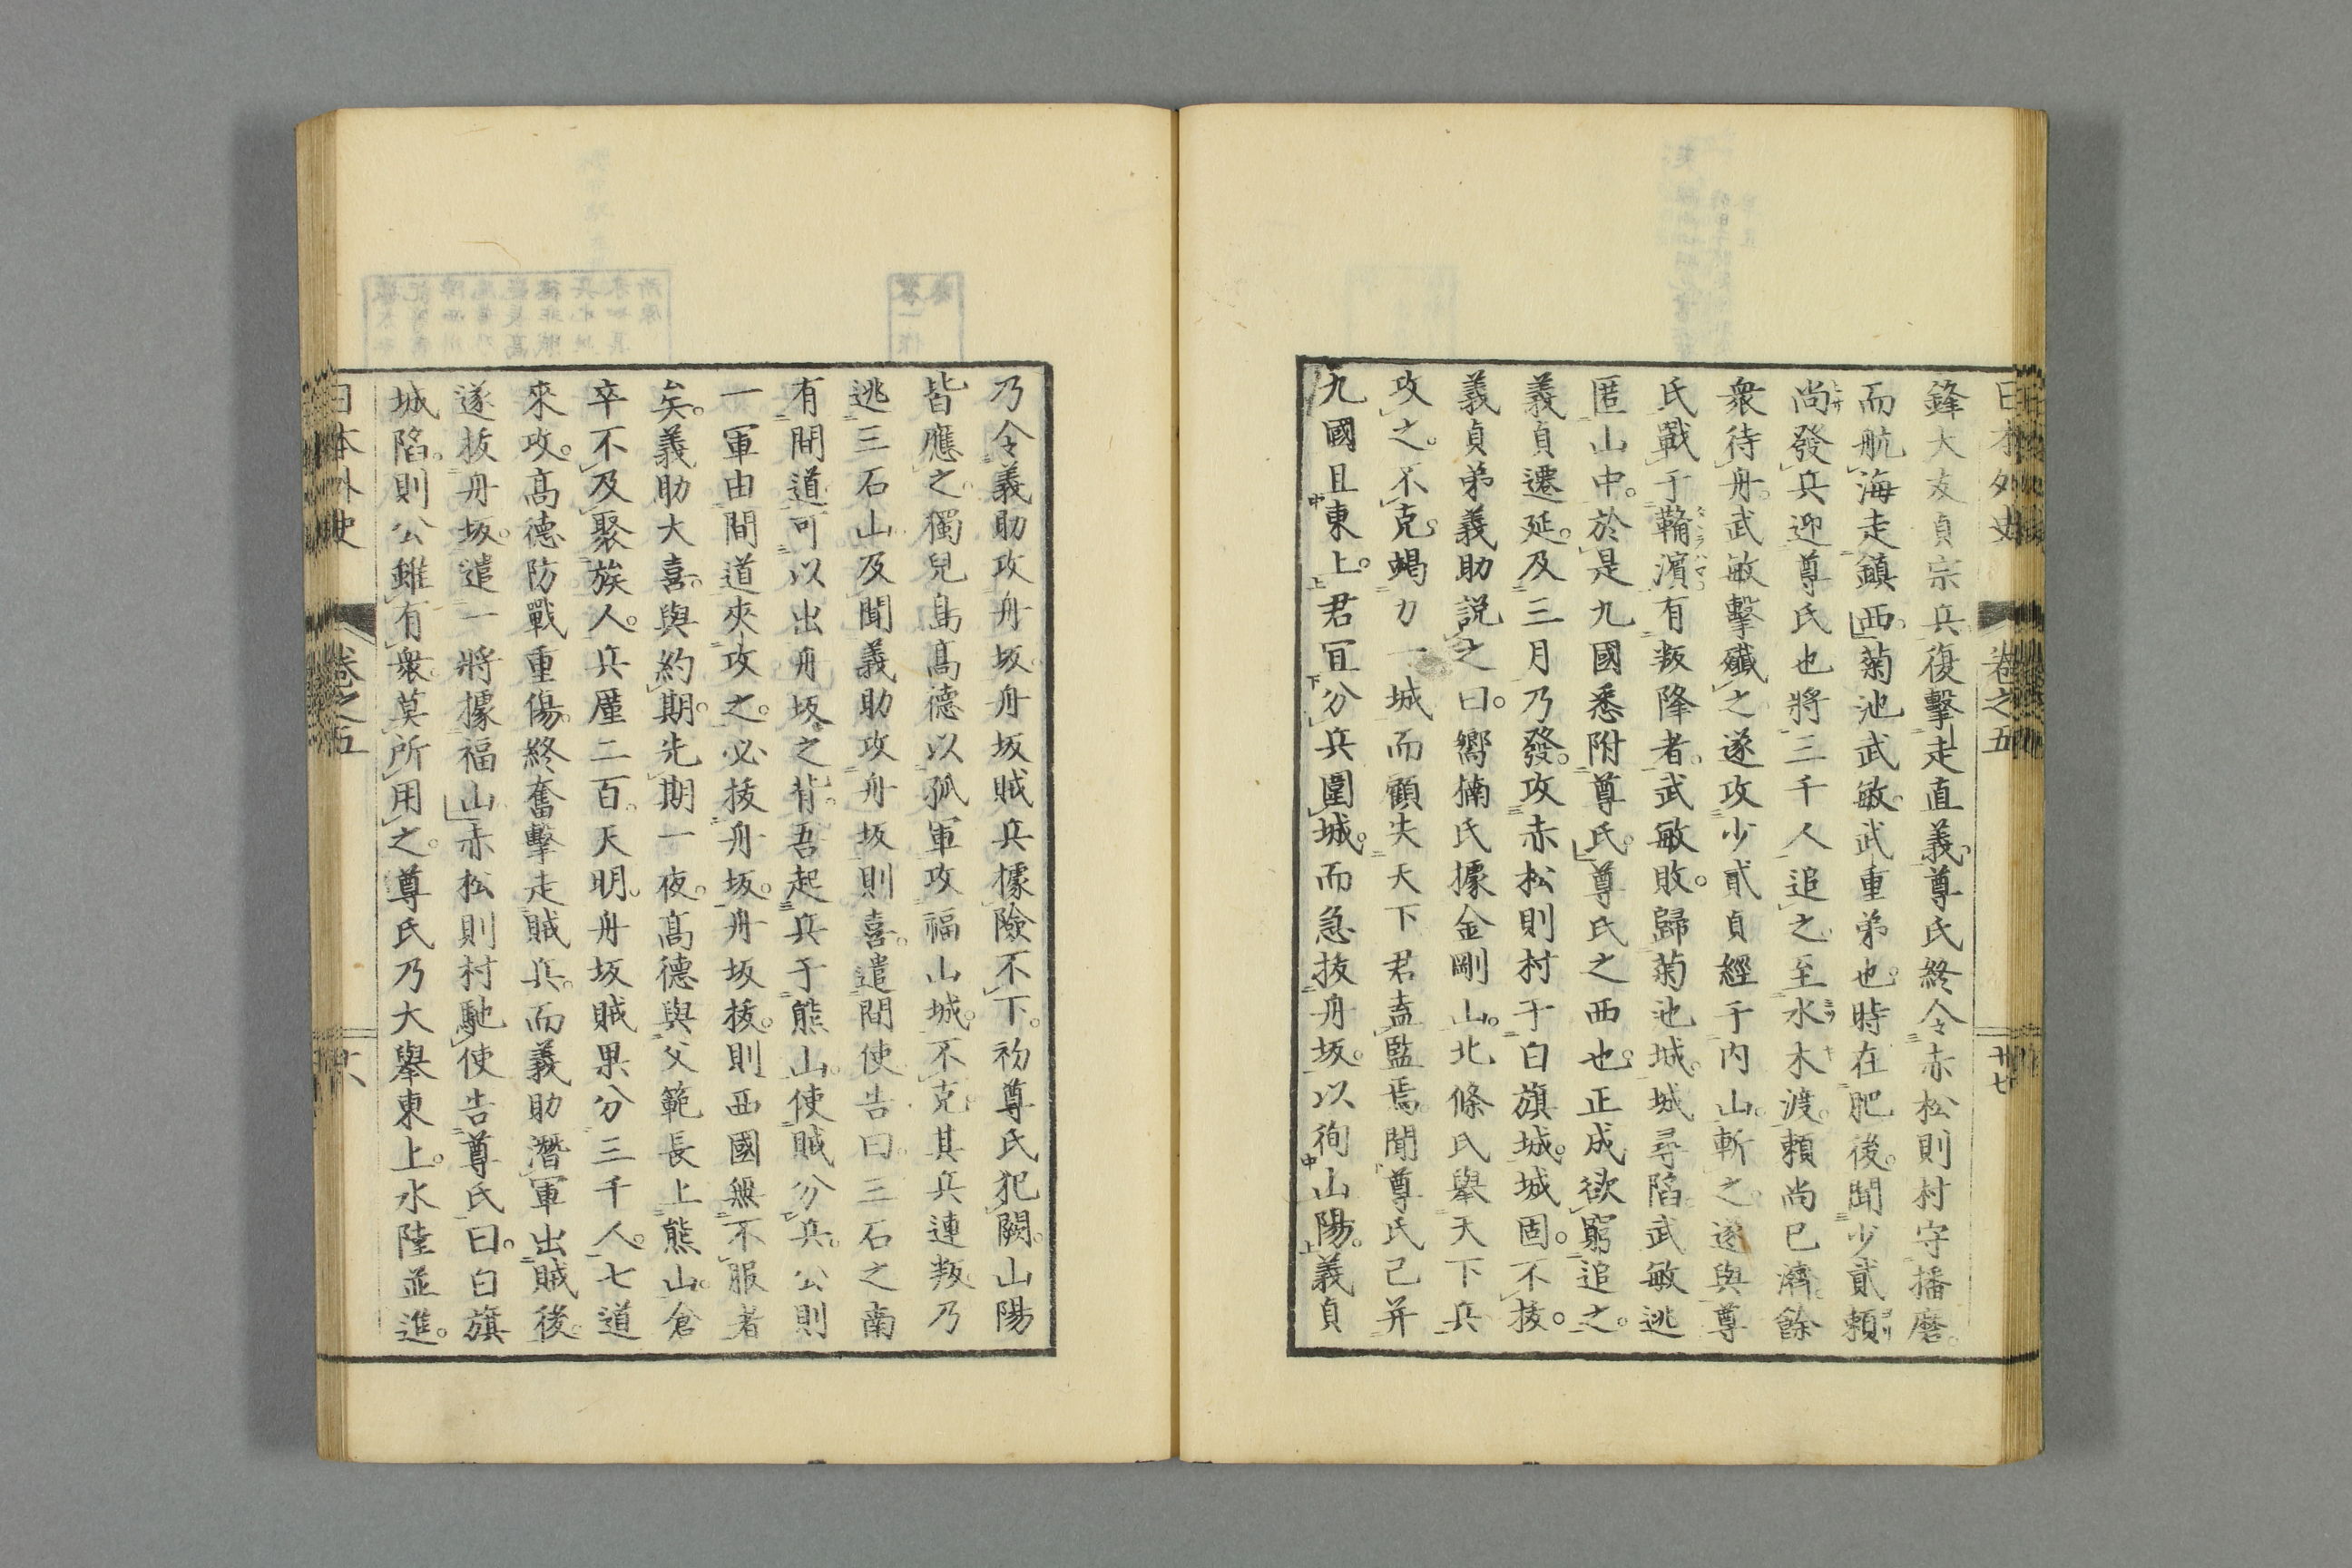 日本外史 卷之五 廿七
鋒大友貞宗兵復擊走直義尊氏終令赤松則村守播磨
而航海走鎮西菊池武敏武重弟也時在肥後聞少貳賴
尚發兵迎尊氏也將三千人追之至水木渡賴尚已濟餘
衆待舟武敏擊殲之遂攻少貳貞經于内山斬之遂與尊
氏戰于鞴濵有叛降者武敏敗歸菊池城城尋陷武敏逃
匿山中於是九國悉附尊氏尊氏之西也正成欲窮追之
義貞遷延及三月乃發攻赤松則村于白旗城城固不拔
義貞弟義助説之曰嚮楠氏據金剛山北條氏舉天下兵
攻之不克竭力一城而顧失天下君盍監焉聞尊氏已并
九國且東上君宜分兵圍城而急拔舟坂以徇山陽義貞
乃令義助攻舟坂舟坂賊兵據險不下初尊氏犯闕山陽
皆應之獨兒島高德以孤軍攻福山城不克其兵連叛乃
逃三石山及聞義助攻舟坂則喜遣間使告曰三石之南
有間道可以出舟坂之背吾起兵于熊山使賊分兵公則
一軍由間道夾攻之必拔舟坂舟坂拔則西國無不服者
矣義助大喜與約期先期一夜高德與父範長上熊山倉
卒不及聚族人兵厪二百天明舟坂賊果分三千人七道
來攻高德防戰重傷終奮擊走賊兵而義助潛軍出賊後
遂拔舟坂遣一將據福山赤松則村馳使告尊氏曰白旗
城陷則公雖有衆莫所用之尊氏乃大舉東上水陸並進
日本外史 卷之五 廿八